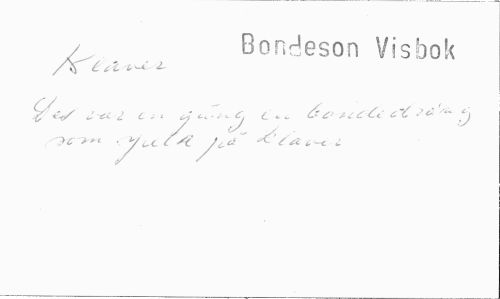 Bondeson Visbok
Klaver
Det var en gång en bondedräng
som gick på klaver